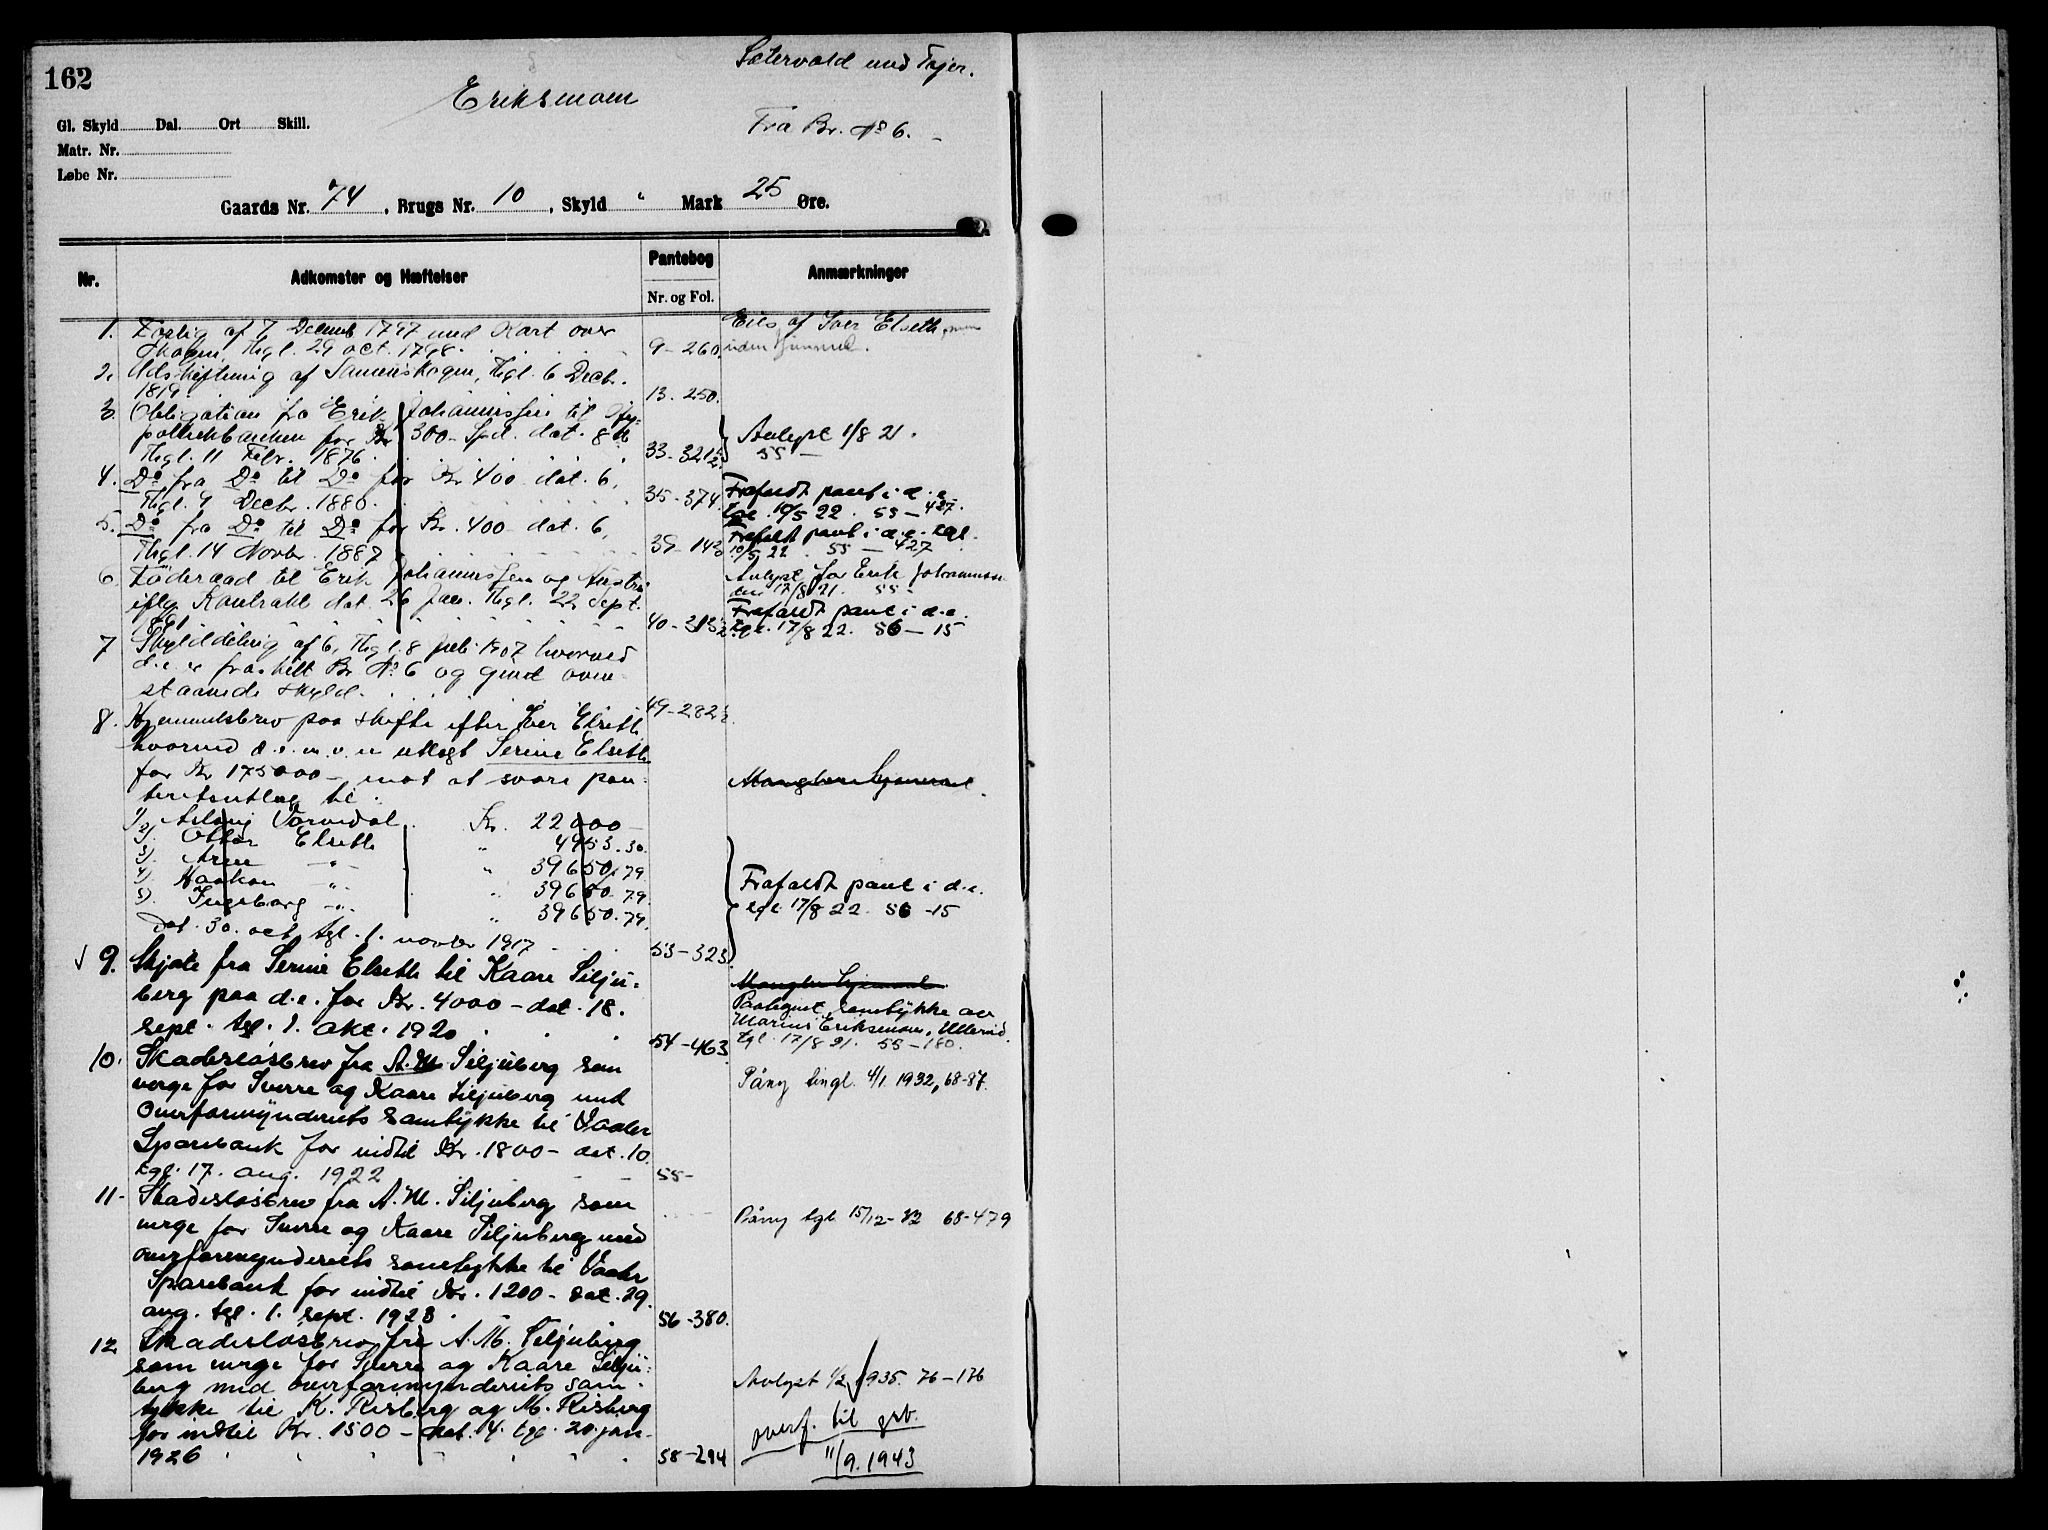 162
Sætervold med Tajer.
Eriksmoen
Fra Br. № 6. –
Gl. Skyld Dal. Ort Skill.
Matr. Nr.
Løbe Nr.
Gaards Nr. 74, Brugs Nr. 10, Skyld " Mark 25 Øre.
Nr. Adkomster og Hæftelser Pantebog Anmærkninger
Nr. og Fol.
1. Forlig af 7 Decemb 1797 med Kart over Eies af Iver Elseth, men
Skogen, Thgl. 29 oct. 1798. 9-260. uden Hjemmel.
2. Udskiftning af Sameieskogen, Thgl. 6 Decbr.
1819. 13. 250.
3. Obligation fra Erik Johannessen til Hy-
pothekbanken for 300 Spd. dat. 8 Avlyst 1/8 21.
Thgl. 11 Febr. 1876. 33-321 55 –
4. Do fra Do til Do for Kr. 400 dat. 6, Frafaldt pant i d.e.
Thgl. 9 Decbr. 1880. 35-374 tgl. 10/5 22. 55-427.
5. Do fra Do til Do for Kr. 400 dat. 6, Frafaldt pant i d.e. tgl.
Thgl. 14 Novbr. 1887 39-142 10/5 22. 55-427
6. Føderaad til Erik Johannessen og Hustru Avlyst for Erik Johannes-
iflg. Kontrakt dat. 26 Jan. Thgl. 22 Sept. sen 17/8 21. 55-
1891 40-313 Frafaldt pant i d.e. tgl. 17/8 22. 56-15
7 Skylddeling af 6, Thgl. 8 Juli 1907 hvorved
d.e. er fraskilt Br. № 6 og givet oven-
staaende skyld. 49-282
8. Hjemmelsbrev paa skifte efter Iver Elseth
hvorved d.e. m.v. er utlagt Serine Elseth
for Kr 175000 – mot at svare pan- Mangler hjemmel.
teretsutlæg til:
1). Aslaug Vormdal Kr. 22000 –
2). Ottar Elseth " 4953.30.
3). Arne –"– " 39650.79
4). Haakon –"– " 39650.79. Frafaldt pant i d.e.
5). Ingeborg –"– " 39650.79. tgl. 17/8 22. 56-15
Dat. 30. oct. tgl. 1. novbr 1917 53-323.
9. Skjøte fra Serine Elseth til Kaare Silju- Mangler hjemmel.
berg paa d.e. for Kr. 4000 – dat. 18. Paategnet samtykke av
sept. tgl. 1. okt. 1920 54-463 Marius Eriksmoen, Ullerud. tgl. 17/8 21. 55-180.
10. Skadesløsbrev fra A.M. Siljuberg som
verge for Sverre og Kaare Siljuberg med Påny tingl. 4/1 1932, 68-87.
overformynderiets samtykke til Vaaler
Sparebank for indtil Kr. 1800 – dat. 10.
tgl. 17. aug. 1922 55-
11- Skadesløsbrev fra A.M. Siljuberg som
verge for Sverre og Kaare Siljuberg med Påny tgl. 15/12-32 68-479
overformynderiets samtykke til Vaaler
Sparebank for indtil Kr. 1200 – dat. 29.
aug. tgl. 1. sept. 1923 56-380.
12 Skadesløsbrev fra A.M. Siljuberg
som verge for Sverre og Kaare Silju-
berg med overformynderiets sam- Avlyst 1/2 1935. 76-176
tykke til K. Risberg og M. Risberg
for indtil Kr. 1500 – dat. 14. tgl. 20. jan. overf. til grb.
1926 58-294 11/9. 1943